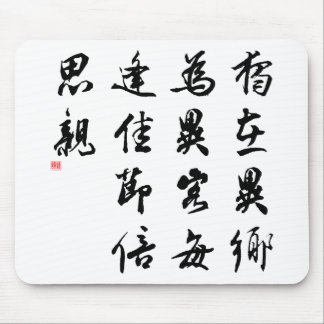 獨在異鄉
為異客每
逢佳節倍
思親